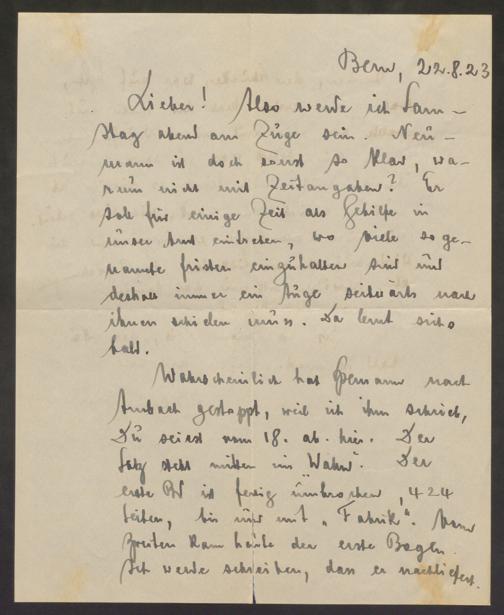 Bern, 22.8.23
Lieber! Also werde ich Sam-
stag abend am Zuge sein. Neu-
mann ist doch sonst so klar, wa-
rum nicht mit Zeitangaben? Er
soll für einige Zeit als Gehilfe in
unser Amt eintreten, wo viele soge-
nannte Fristen einzuhalten sind und
deshalb immer ein Auge seitwärts nach
ihnen schielen muss. Da lernt sichs
bald.
Wahrscheinlich hat nach
Ambach getappt, weil ich ihm schrieb,
Du seiest vom 18. ab hier. Der
Satz steht mitten im "Wahn". Der
erste Bd ist fertig umbrochen, 424
Seiten, bis und mit "Fabrik". Vom
zweiten kam heute der erste Bogen.
Ich werde schreiben, dass er nachliefert.